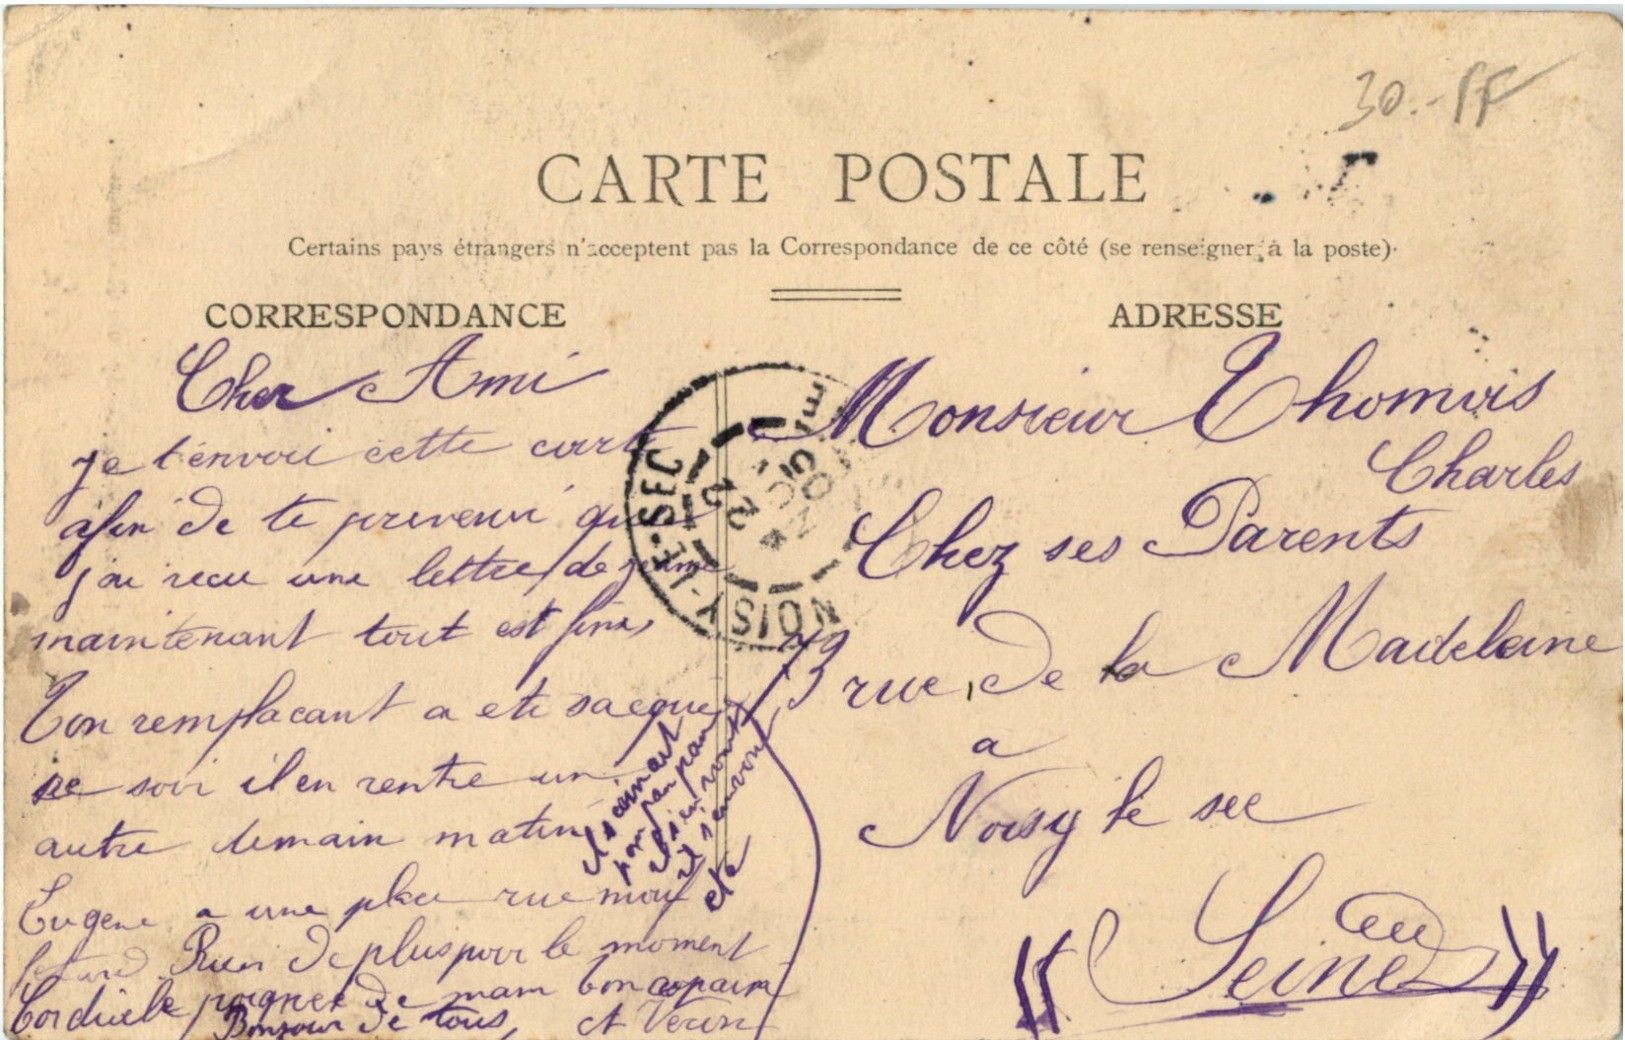 30.- FF
CARTE POSTALE
Certains pays étrangers n'acceptent pas la Correspondance de ce côté (se renseigner à la poste).
CORRESPONDANCE
Cher Ami
je t'envoie cette carte
afin de te prevenir que
j'ai recu une lettre de
maintenant tout est finis
Ton remplacant a ete sacqué
ce soir il en rentre un
autre demain matin
Eugene a une place rue mouf
fetard Rien de plus pour le moment
Cordiale poignee de main ton copain
Bonjour de tous, A Veron
pan pan
ils en vont
etc
NOISY-LE-SEC
22
ADRESSE
Monsieur Thomois
Charles
Chez ses Parents
73 rue de la Madeleine
a
Noisy le sec
(( Seine ))